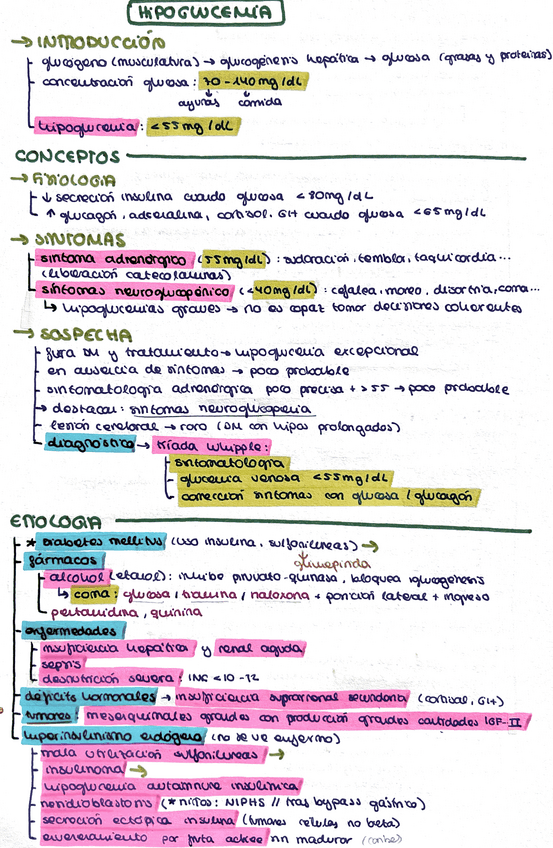 HIPOGLUCEMIA
→ INTRODUCCIÓN
glucógeno (musculatura) → glucogénesis hepática → glucosa (grasas y proteinas)
concentración glucosa: 70 - 140 mg/dL
ayunas comida
hipoglucemia: <55 mg/dL
CONCEPTOS
→ FISIOLOGIA
↓ secreción insulina cuando glucosa <80mg/dL
↑ glucagón, adrenalina, cortisol, GH cuando glucosa <65 mg/dL
→ SÍNTOMAS
síntoma adrenérgico (55mg/dL): sudoración, temblor, taquicardia...
(liberación catecolaminas)
síntomas neuroglucopénico (<40mg/dL): cefalea, mareo, disartria, coma...
↳ hipoglucemias graves → no es capaz tomar decisiones coherentes
→ SOSPECHA
fuera DM y tratamiento → hipoglucemia excepcional
en ausencia de síntomas → poco probable
sintomatologia adrenérgica poco precisa + >55 → poco probable
→ destacar: síntomas neuroglucopenia
lesión cerebral → raro (DM con hipos prolongados)
diagnóstico → tríada whipple:
sintomatologia
glucemia venosa <55mg/dL
corrección síntomas con glucosa / glucagón
ETIOLOGIA
* diabetes mellitus (uso insulina, sulfonilureas) →
glimepirida
fármacos
alcohol (etanol): inhibe piruvato-quinasa, bloquea glucogénesis
↳ coma: glucosa / tiamina / naloxona + posición lateral + ingreso
pentamidina, quinina
enfermedades
insuficiencia hepática y renal aguda
sepsis
desnutrición severa: IMC <10-12
déficits hormonales → insuficiencia suprarrenal secundaria (cortisol, GH)
tumores: mesenquimales grandes con producción grandes cantidades IGF-II
hiperinsulinismo endógeno (no se ve enfermo)
mala utilización sulfonilureas →
insulinoma →
hipoglucemia autoinmune insulínica
nesidioblastosis (* niños: NIPHS // tras bypass gástrico)
secreción ectópica insulina (tumores células no beta)
envenenamiento por fruta ackee nn madurar (caribe)